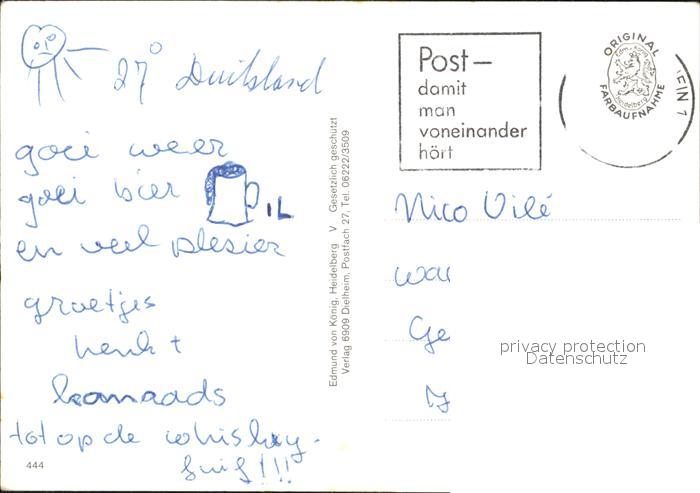 27° Duitsland
goei weer
goei bier
1L
en veel plesier
groetjes
henk +
kamaads
tot op de whiskey-
fuif!!!
444
Edmund von König, Heidelberg V Gesetzlich geschützt
Verlag 6909 Dielheim, Postfach 27, Tel. 06222/3509
Post—
damit
man
voneinander
hört
ORIGINAL
Edm. v. König
Heidelberg
FARBAUFNAHME
Nico Vilé
Ge
privacy protection
Datenschutz